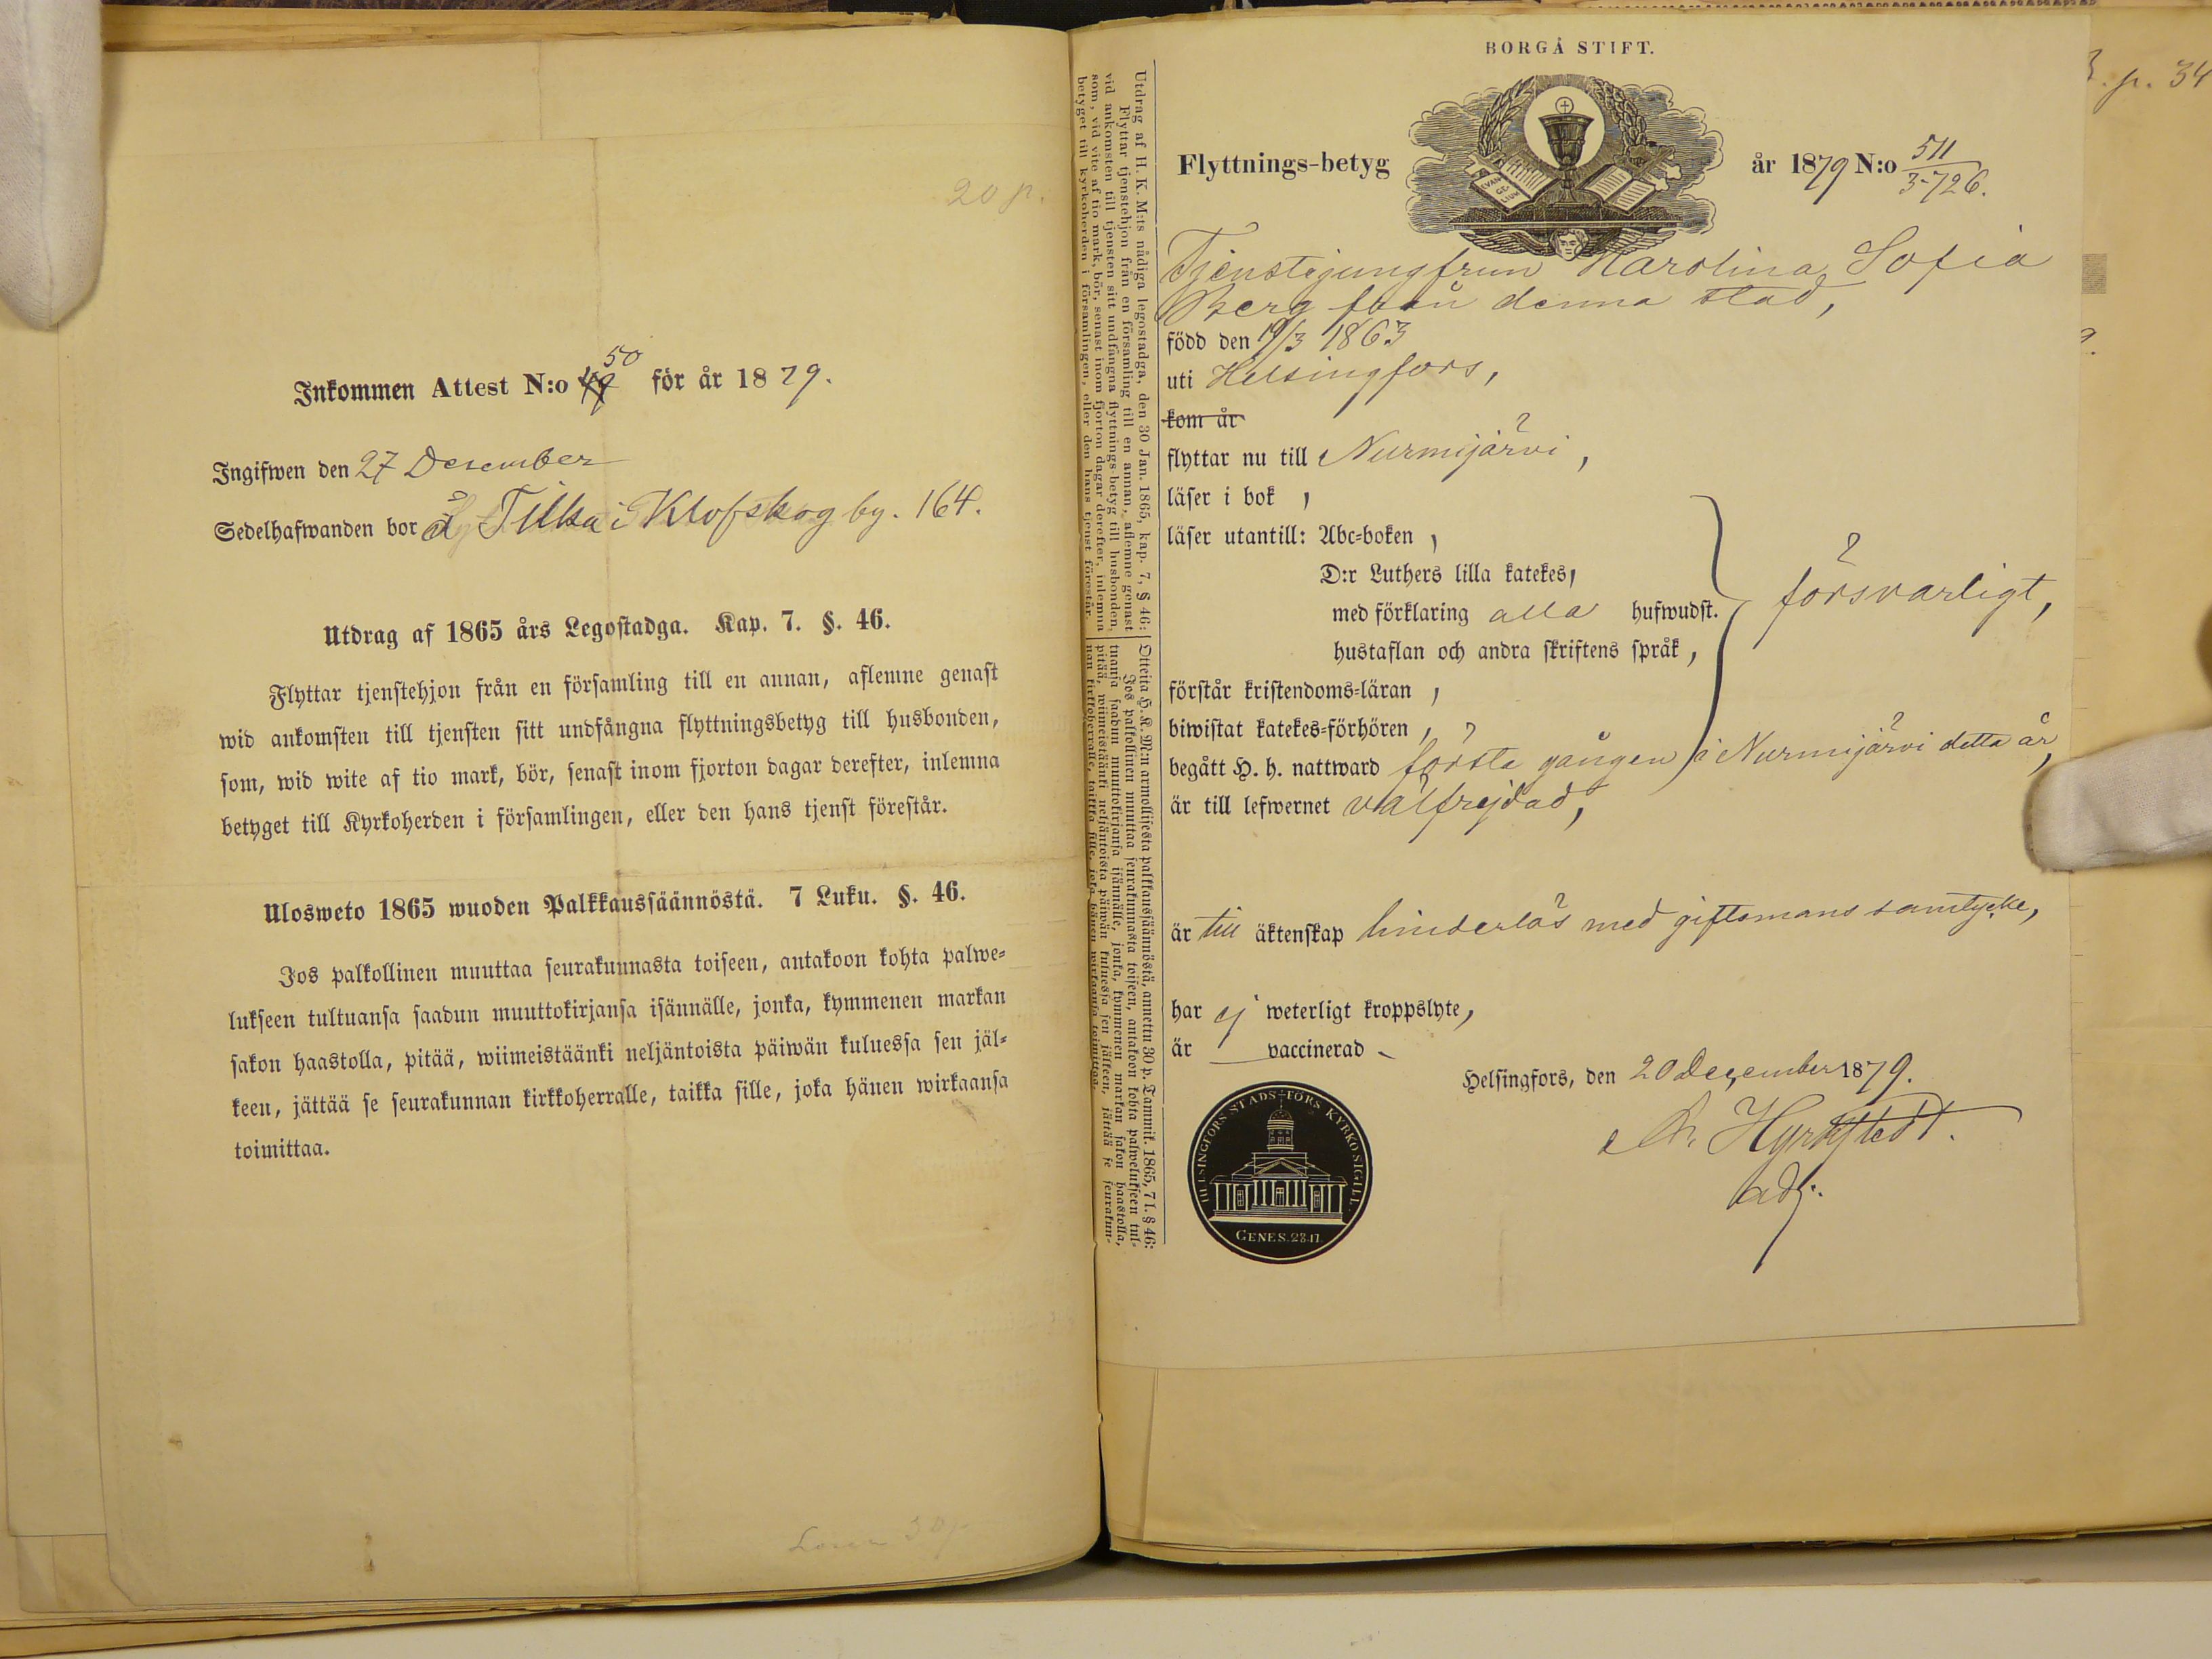 20 p.
Inkommen Attest N:o 49 50 för år 1879.
Ingifwen den 27 December
Sedelhafwanden bor å Tilka i Klofskog by. 164.
Utdrag af 1865 års Legostadga. Kap. 7. §. 46.
Flyttar tjenstehjon från en församling till en annan, aflemne genast
wid ankomsten till tjensten sitt undfångna flyttningsbetyg till husbonden,
som, wid wite af tio mark, bör, senast inom fjorton dagar derefter, inlemna
betyget till Kyrkoherden i församlingen, eller den hans tjenst förestår.
Ulosweto 1865 wuoden Palkkaussäännöstä. 7 Luku. §. 46.
Jos palkollinen muuttaa seurakunnasta toiseen, antakoon kohta palwe-
lukseen tultuansa saadun muuttokirjansa isännälle, jonka, kymmenen markan
sakon haastolla, pitää, wiimeistäänki neljäntoista päiwän kuluessa sen jäl-
keen, jättää se seurakunnan kirkkoherralle, taikka sille, joka hänen wirkaansa
toimittaa.
Utdrag af H. K. M:ts nådiga legostadga, den 30 Jan. 1865, kap. 7, § 46:
Flyttar tjenstehjon från en församling till en annan, aflemne genast
vid ankomsten till tjensten sitt undfångna flyttnings-betyg till husbonden,
som, vid vite af tio mark, bör, senast inom fjorton dagar derefter, inlemna
betyget till kyrkoherden i församlingen, eller den hans tjenst förestår.
Otteita H. K. M:n armollisesta palkkaussäännöstä, annettu 30 p. Tammik. 1865, 7 l. § 46:
Jos palkollinen muuttaa seurakunnasta toiseen, antakoon kohta palwelukseen tul-
tuansa saadun muuttokirjansa isännälle, jonka, kymmenen markan sakon haastolla,
pitää, wiimeistäänki neljäntoista päiwän kuluessa sen jälkeen, jättää se seurakun-
nan kirkkoherralle, taikka sille, joka hänen wirkaansa toimittaa.
BORGÅ STIFT.
Flyttnings-betyg
EVAN
GE
LIUM
år 1879 N:o 511
3726.
Tjenstejungfrun Karolina Sofia
Berg från denna stad,
född den 19/3 1863
uti Helsingfors,
kom år
flyttar nu till Nurmijärvi,
läser i bok ,
läser utantill: Abc-boken ,
D:r Luthers lilla katekes,
med förklaring alla hufwudst.
försvarligt,
hustaflan och andra skriftens språk ,
förstår kristendoms-läran ,
biwistat katekes-förhören ,
begått H. h. nattward första gången i Nurmijärvi detta år,
är till lefwernet välfrejdad,
är till äktenskap hinderlös med giftomans samtycke,
har ej weterligt kroppslyte,
är vaccinerad
Helsingfors, den 20 December 1879.
Hyrkstedt.
adj.
HELSINGFORS STADS FÖRS KYRKOSIGILL
GENES. 28.17.
p. 34